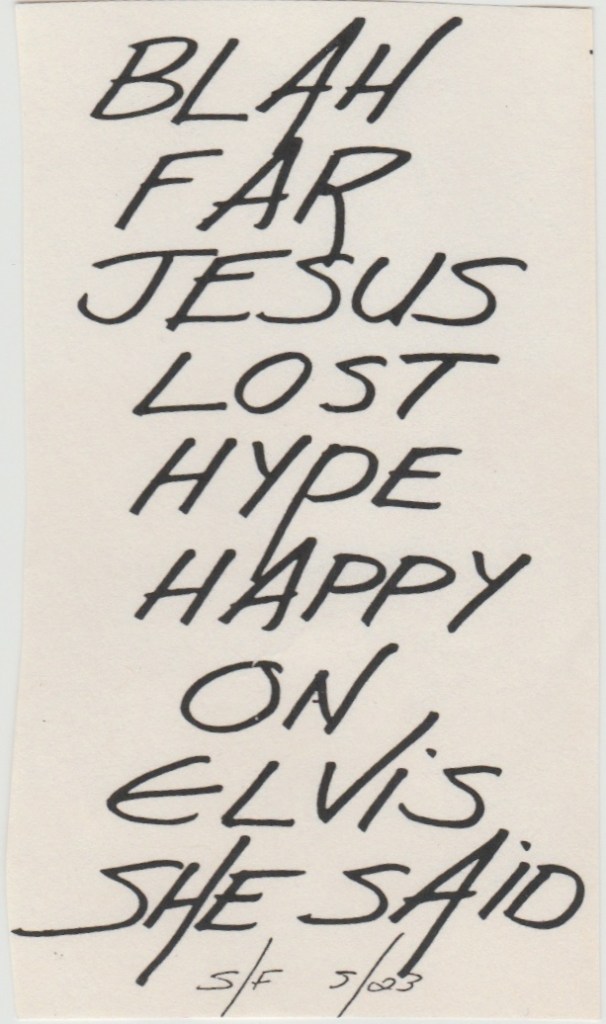 BLAH
FAR
JESUS
LOST
HYPE
HAPPY
ON
ELViS
SHE SAiD
S/F 5/23